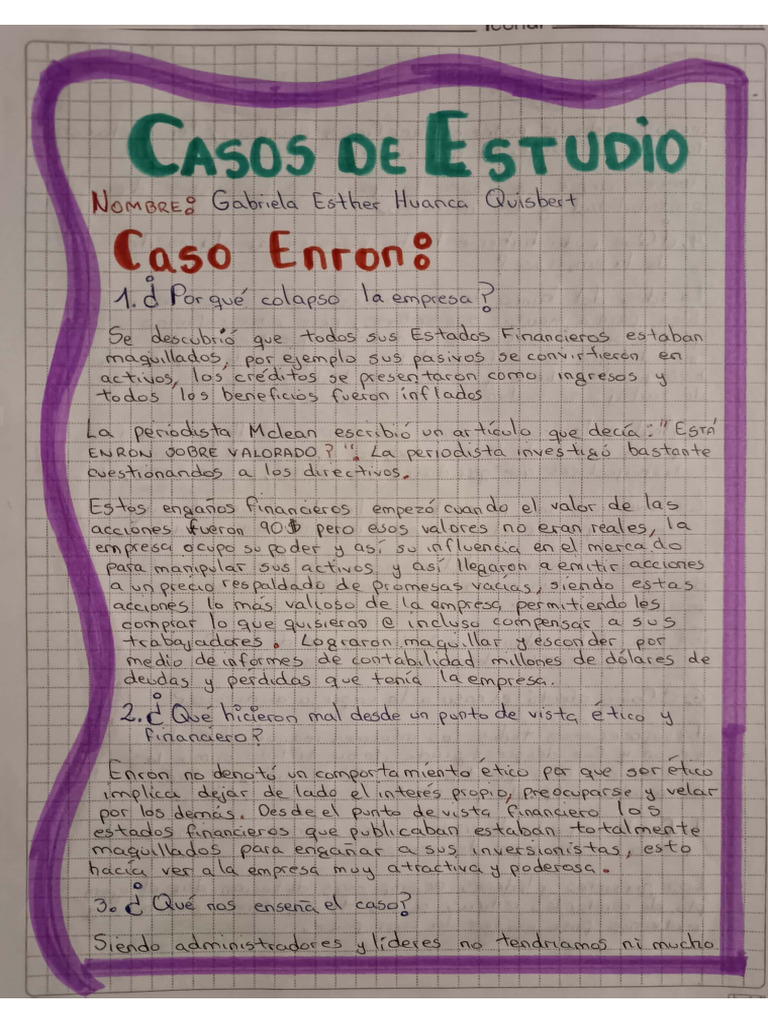 CASOS DE ESTUDIO
NOMBRE: Gabriela Esther Huanca Quisbert
Caso Enron:
1. ¿Por qué colapso la empresa?
Se descubrió que todos sus Estados Financieros estaban
maquillados, por ejemplo sus pasivos se convirtieron en
activos, los créditos se presentaron como ingresos y
todos los beneficios fueron inflados
La periodista Mclean escribió un artículo que decía: "ESTÁ
ENRON SOBRE VALORADO?". La periodista investigó bastante
cuestionandos a los directivos.
Estos engaños financieros empezó cuando el valor de las
acciones fueron 90$ pero esos valores no eran reales, la
empresa ocupo su poder y así su influencia en el mercado
para manipular sus activos, y así llegaron a emitir acciones
a un precio respaldado de promesas vacías, siendo estas
acciones lo más valioso de la empresa, permitiendoles
comprar lo que quisieran e incluso compensar a sus
trabajadores. Lograron maquillar y esconder por
medio de informes de contabilidad millones de dólares de
deudas y perdidas que tenía la empresa.
2. ¿Qué hicieron mal desde un punto de vista ético y
financiero?
Enron no denotó un comportamiento ético por que ser ético
implica dejar de lado el interés propio, preocuparse y velar
por los demás. Desde el punto de vista financiero los
estados financieros que publicaban estaban totalmente
maquillados para engañar a sus inversionistas, esto
hacía ver a la empresa muy atractiva y poderosa.
3. ¿Qué nos enseña el caso?
Siendo administradores y líderes no tendríamos ni mucho